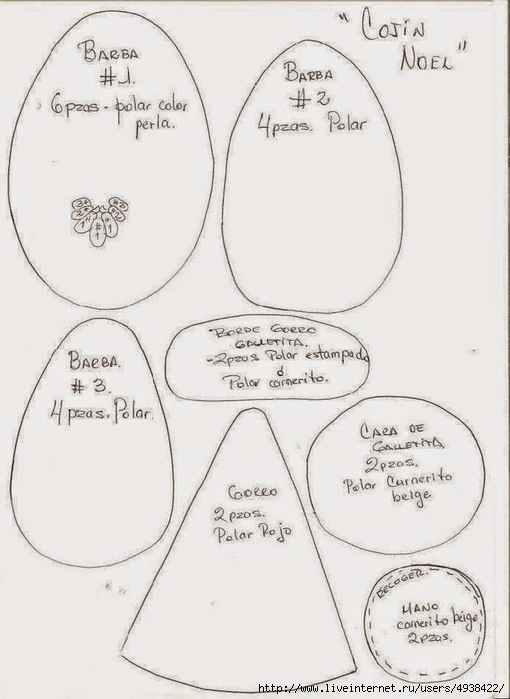 "Cojín
Noel"
Barba
#1.
6pzas - polar color
perla.
Barba
#2
4pzas. Polar
Borde Gorro
Galletita.
-2pzas Polar estampado
ó
Polar carnerito.
Barba.
#3.
4pzas. Polar.
Cara de
Galletita.
2pzas.
Polar Carnerito
beige
Gorro
2pzas.
Polar Rojo
Recoger.
Mano
carnerito beige
2pzas.
http://www.liveinternet.ru/users/4938422/